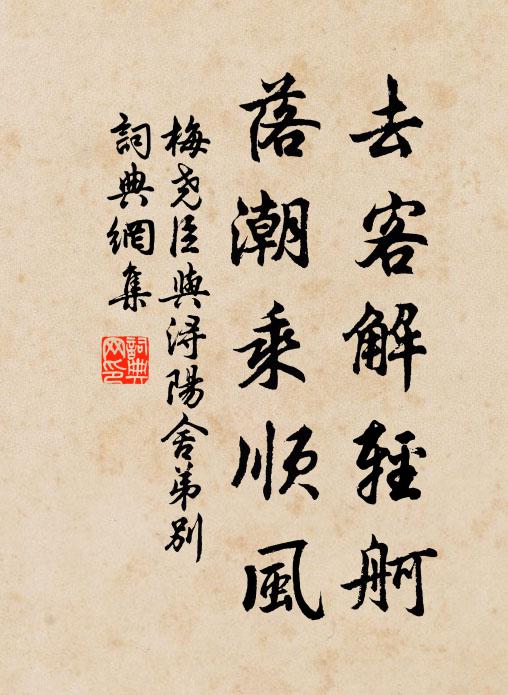 去客解輕舸
落潮乘順風
梅尧臣與浔陽舍弟別
詞典網集
詞典网印